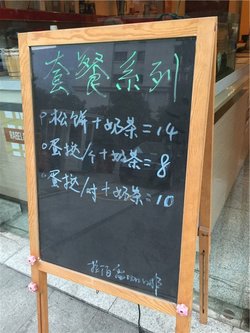 套餐系列
松饼+奶茶=14
蛋挞/个+奶茶=8
蛋挞/对+奶茶=10